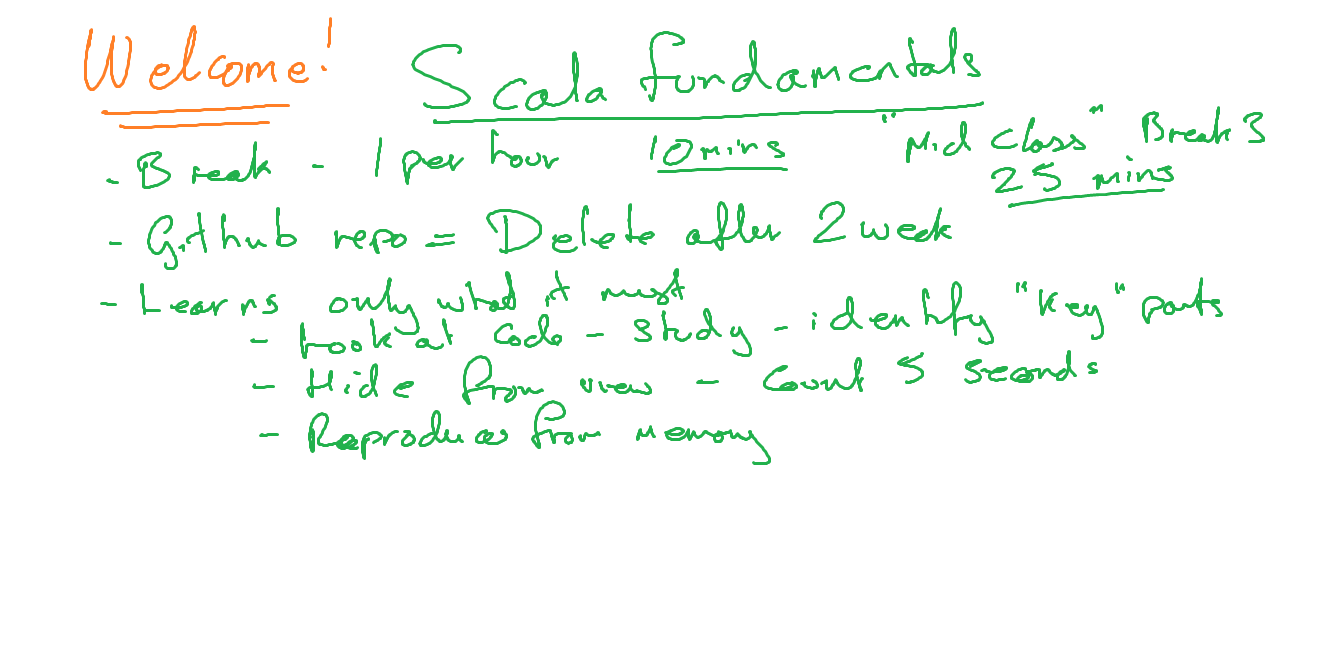 Welcome! Scala fundamentals
- Break - 1 per hour 10 mins "Mid Class" Break 3
25 mins
- Github repo = Delete after 2 week
- Learns only what it must
- Look at Code - Study - identify "Key" parts
- Hide from view - Count 5 seconds
- Reproduces from memory